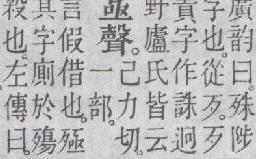 廣韵曰。殊陟
字也。從歹。歹
責字作誅迥
野廬氏皆云
亟聲。己力切。一部。
言假借也。殛
其字廟於殤
殺也。左傳曰。